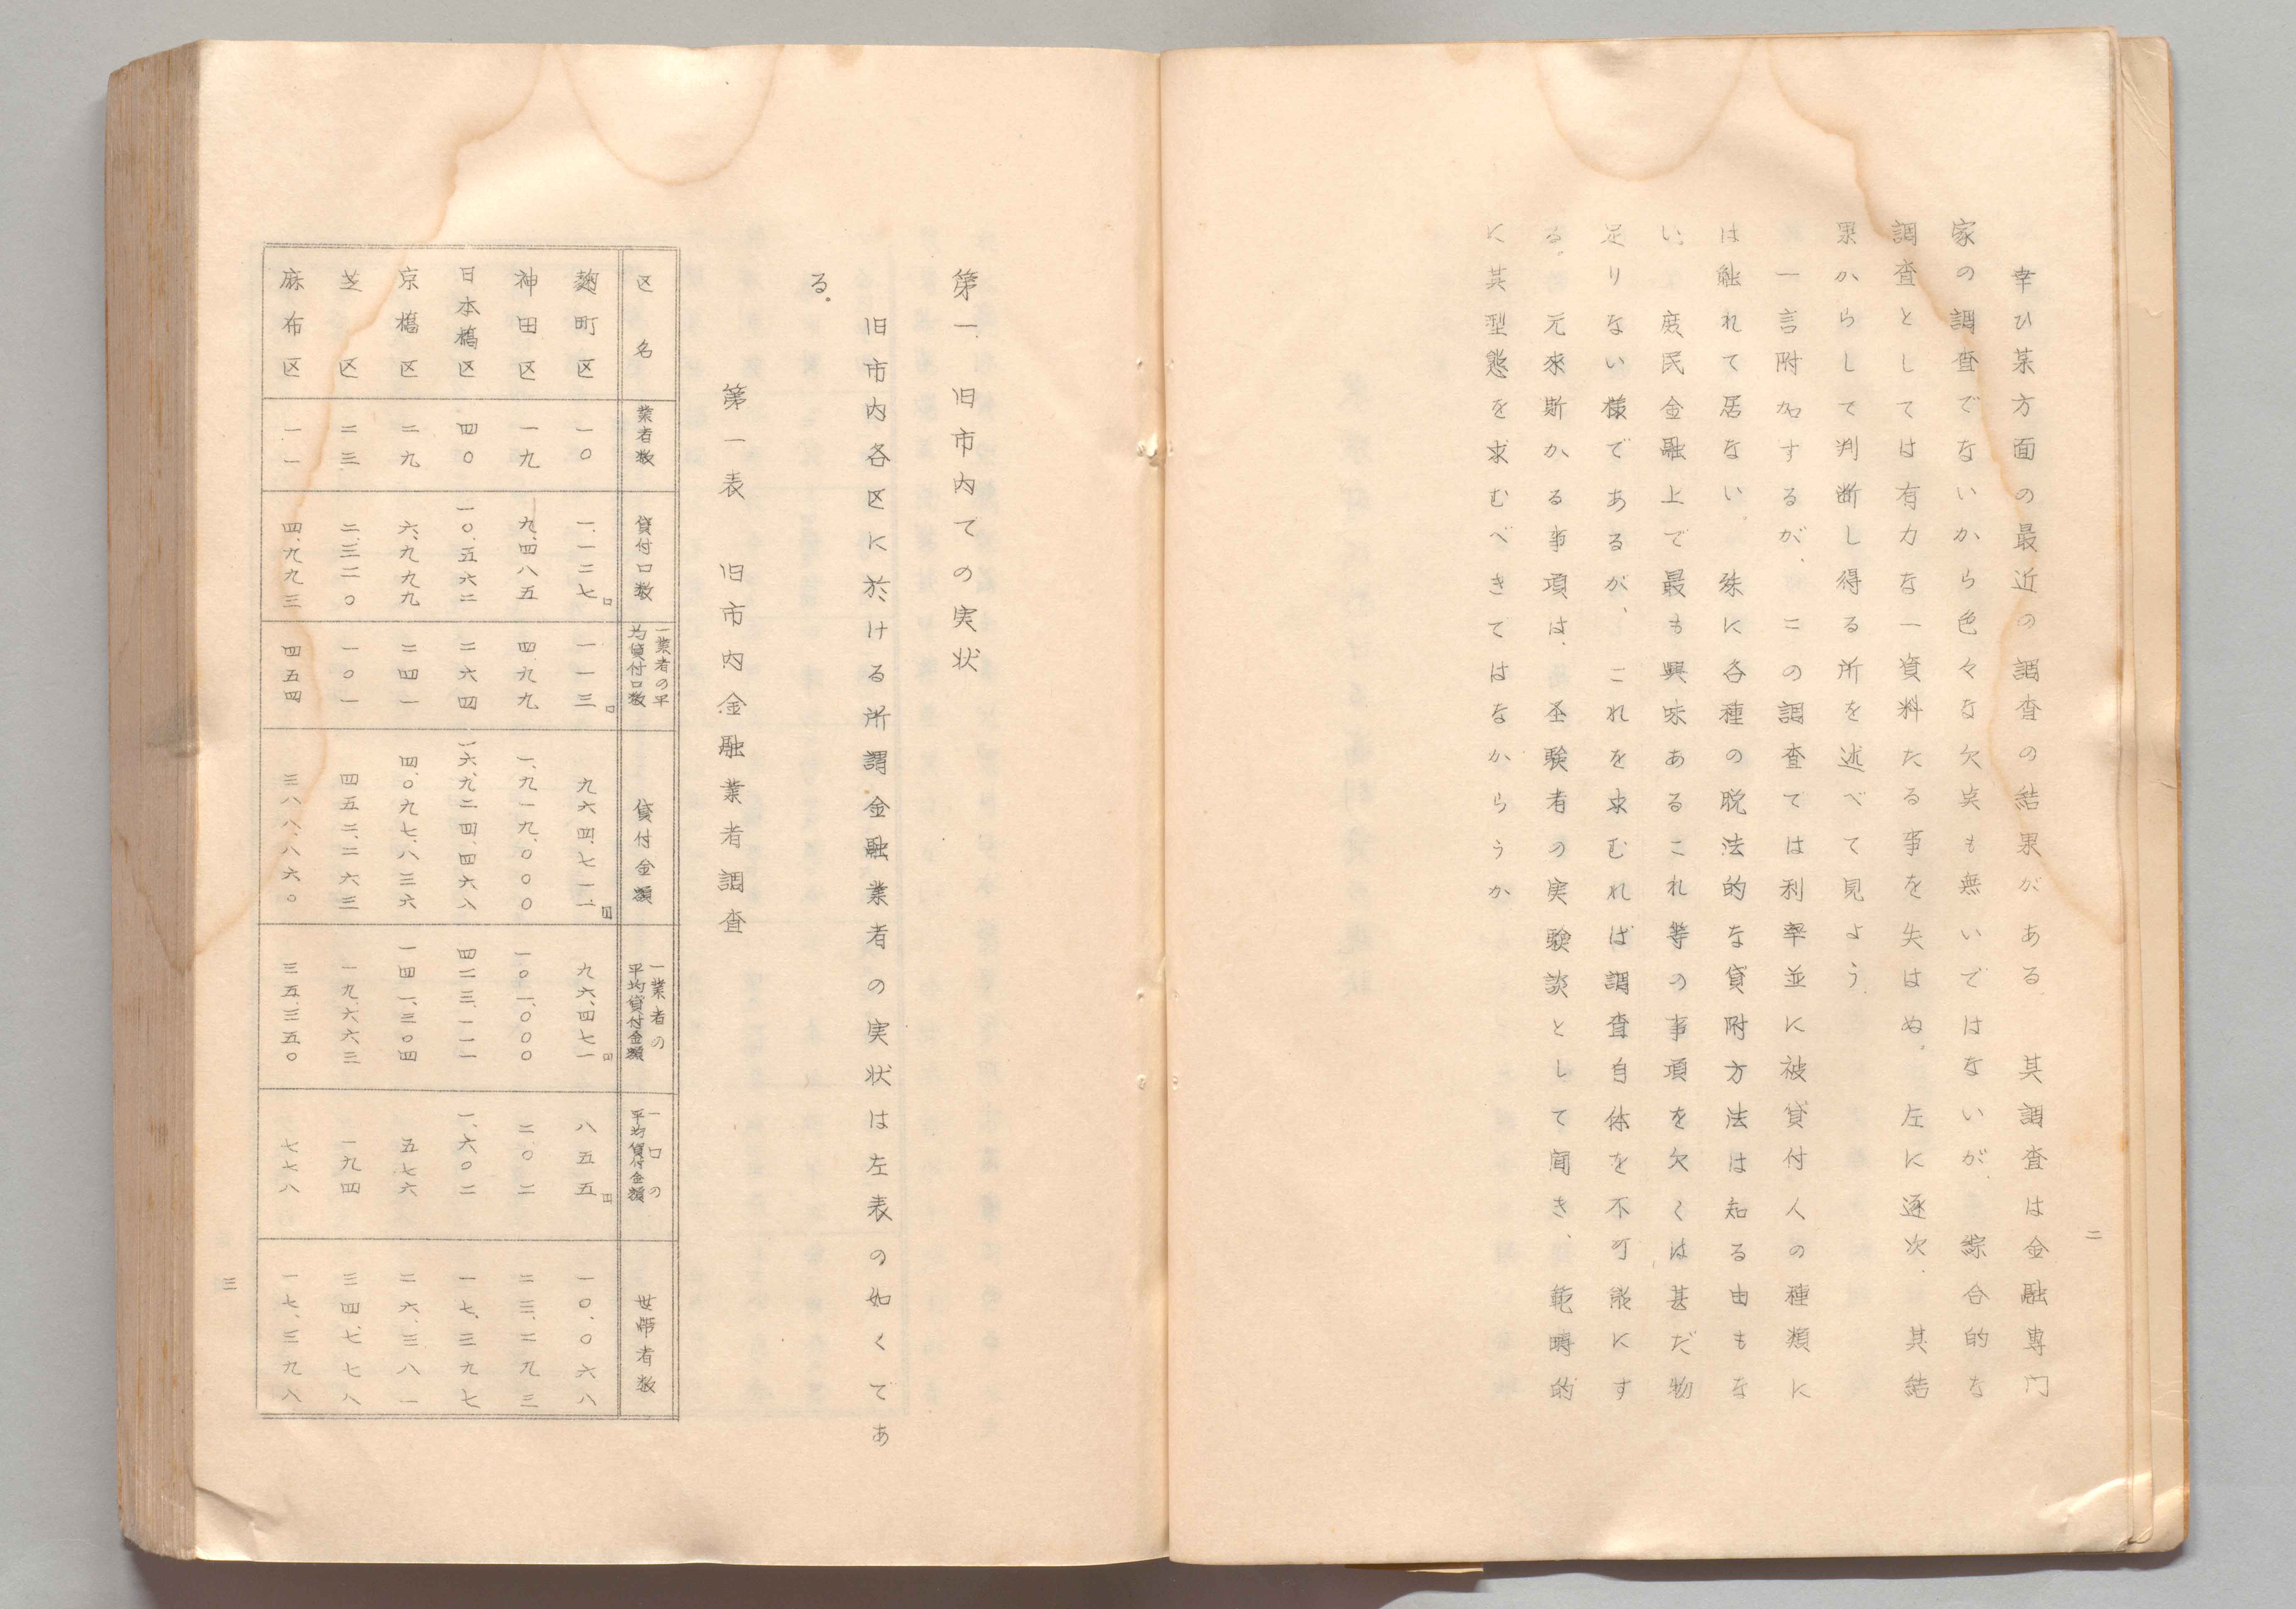 幸ひ某方面の最近の調査の結果がある　其調査は金融専門
家の調査でないから色々な欠点も無いではないが、綜合的な
調査としては有力な一資料たる事を失はぬ。左に逐次、其結
果からして判断し得る所を述べて見よう
一言附加するが、この調査では利率並に被貸付人の種類に
は触れて居ない　殊に各種の脱法的な貸附方法は知る由もな
い。庶民金融上で最も興味あるこれ等の事項を欠くは甚だ物
足りない様であるが、これを求むれば調査自体を不可能にす
る。元来斯かる事項は、圣験者の実験談として聞き、範疇的
に其型態を求むべきではなからうか
二
第一　旧市内での実状
旧市内各区に於ける所謂金融業者の実状は左表の如くであ
る。
第一表　旧市内金融業者調査
区名　業者数　貸付口数　一業者の平均貸付口数　貸付金額　一業者の平均貸付金額　一口の平均貸付金額　世帯者数
麹町区　一〇　一、一二七口　一一三口　九六四、七一一円　九六、四七一円　八五五円　一〇、〇六八
神田区　一九　九、四八五　四九九　一、九一九、〇〇〇　一〇一、〇〇〇　二〇二　二三、二九三
日本橋区　四〇　一〇、五六二　二六四　一六、九二四、四六八　四二三、一一一　一、六〇二　一七、三九七
京橋区　二九　六、九九九　二四一　四、〇九七、八三六　一四一、三〇四　五七六　二六、三八一
芝区　二三　二、三二〇　一〇一　四五二、二六三　一九、六六三　一九四　三四、七七八
麻布区　一一　四、九九三　四五四　三八八、八六〇　三五、三五〇　七七八　一七、三九八
三